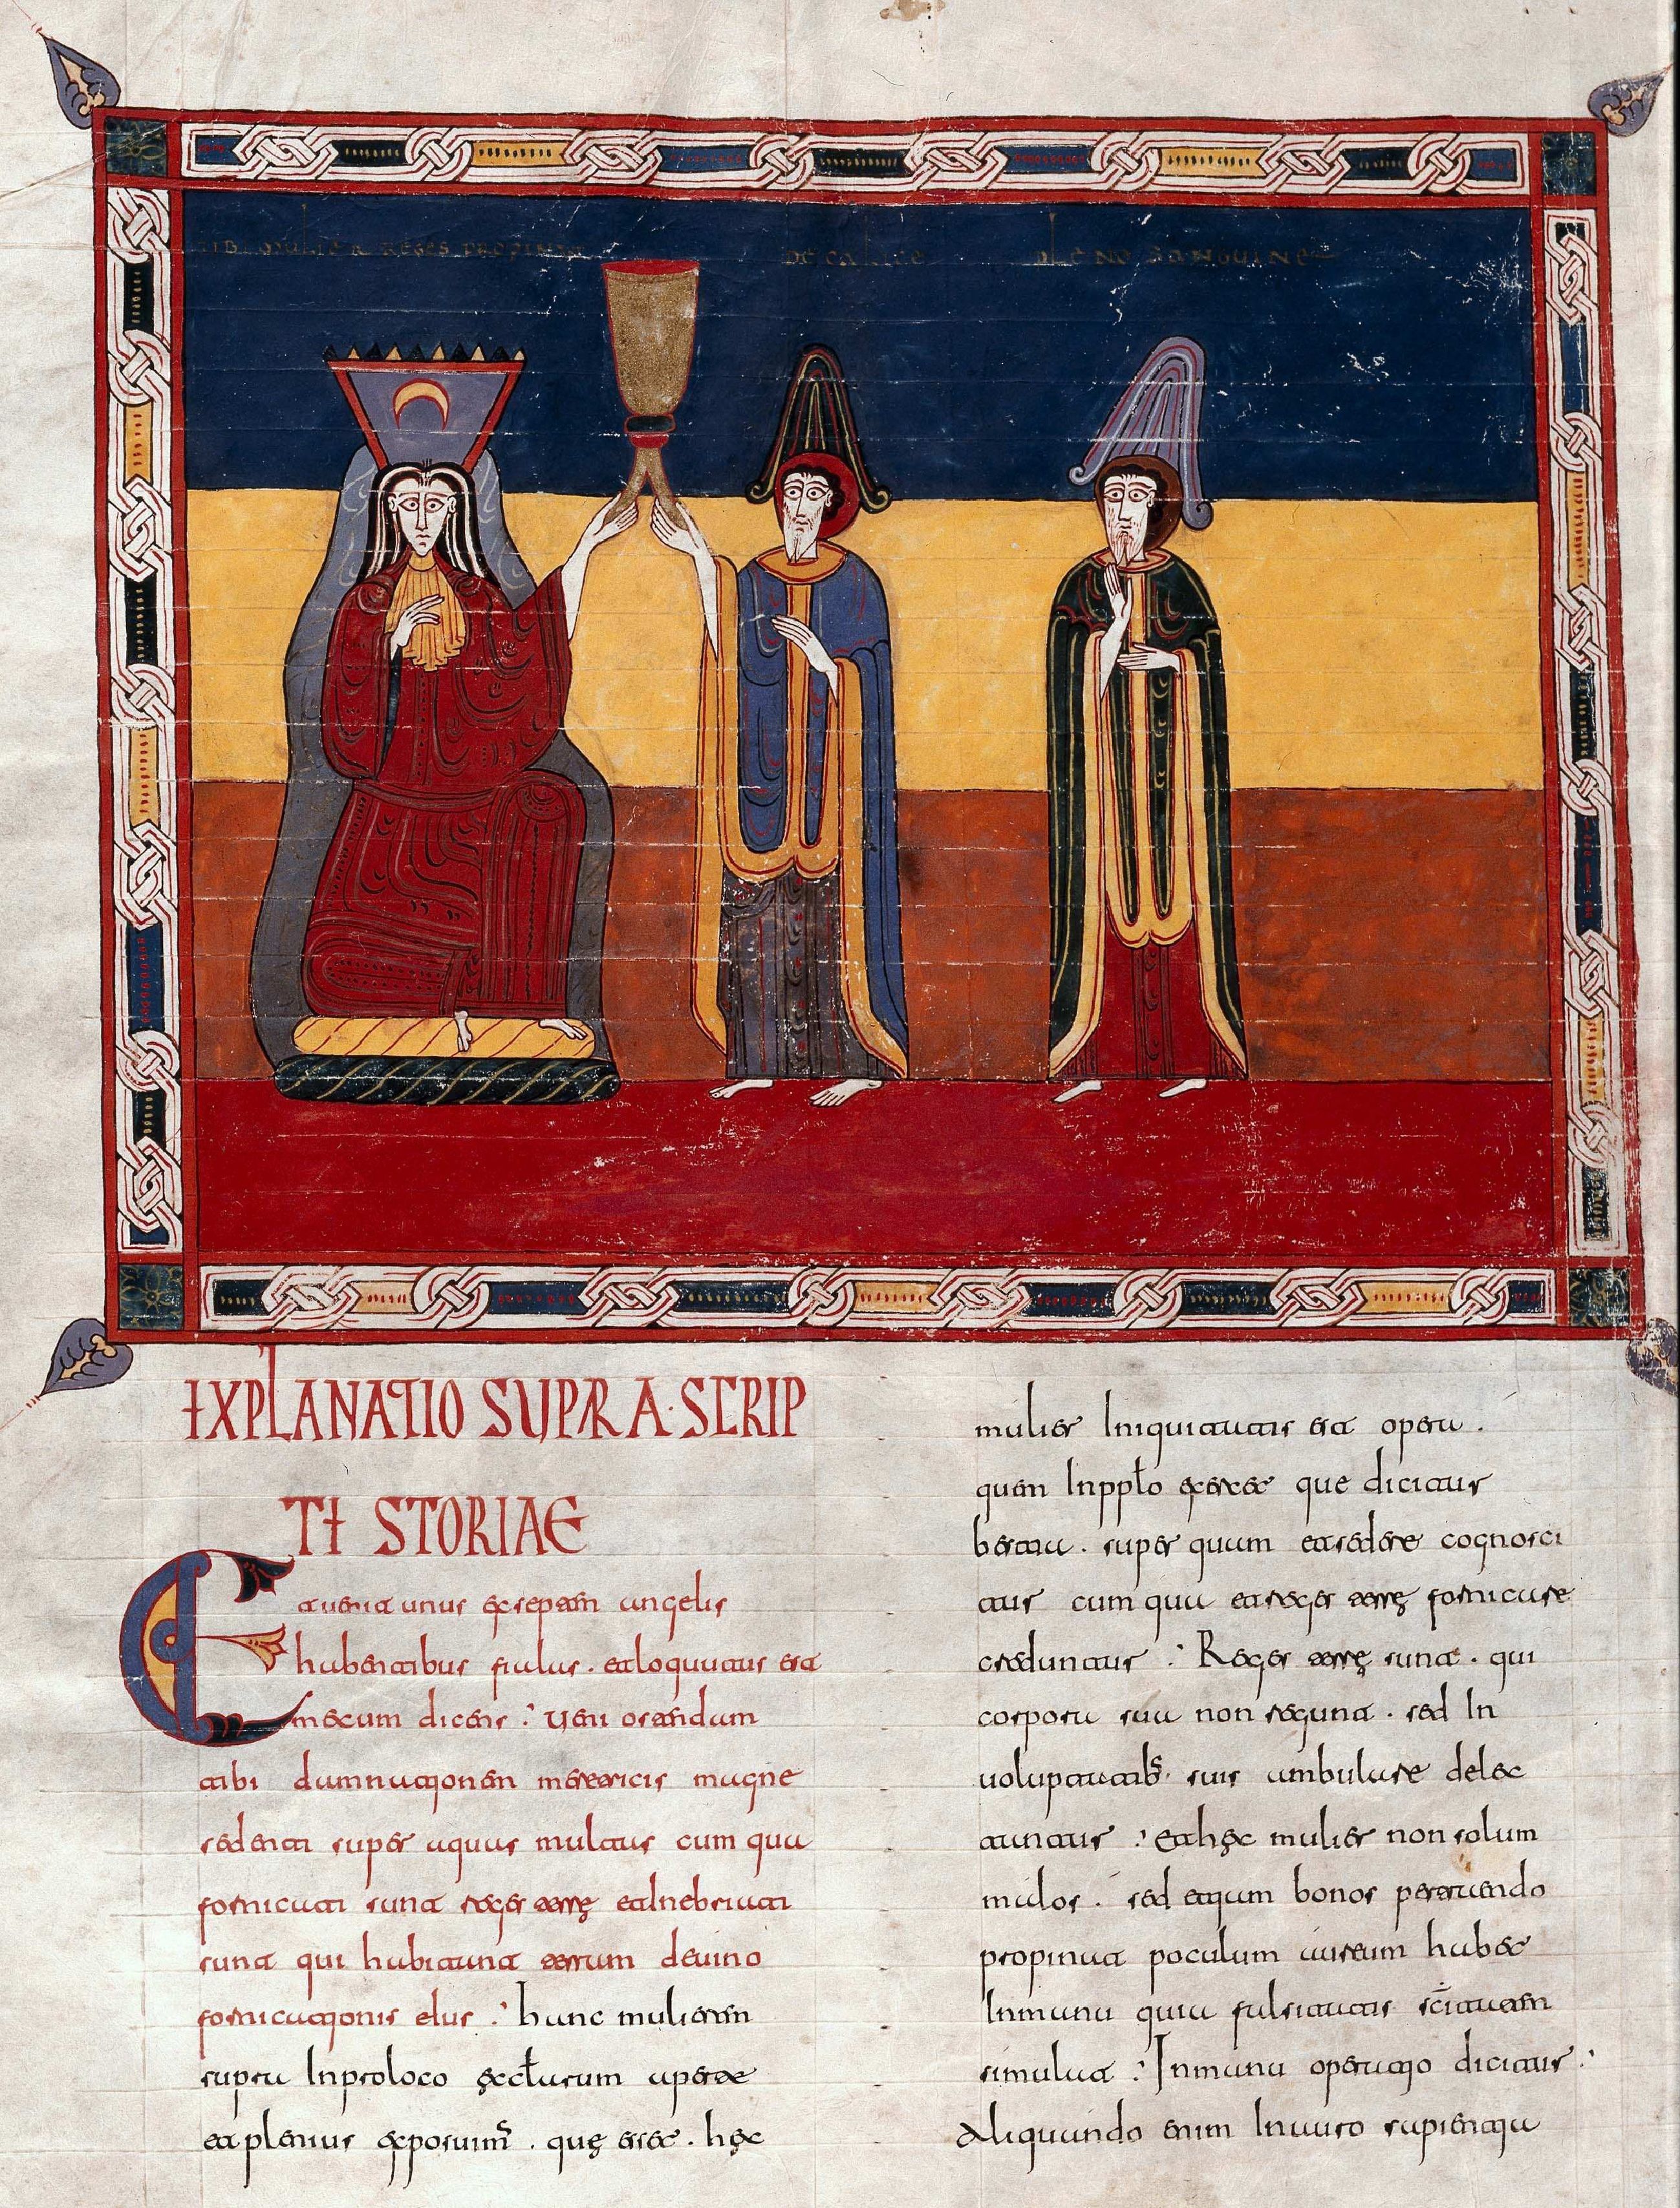 UBI MULIER REGES PROPINAT DE CALICE PLENO SANGUINE
EXPLANATIO SUPRA · SCRIP
TE STORIAE
Et uenit unus ex septem angelis
habentibus fialas . et loquutus est
mecum dicens : ueni ostendam
tibi damnationem meretricis magne
sedenti super aquas multas cum qua
fornicati sunt reges terrę et Inebriati
sunt qui habitant terram de uino
fornicationis eius : hanc mulierem
supra In proloco ęcłarum aperte
et plenius exposuim̄s . quę esset . hęc
mulier Iniquitatis est opera .
quam In ppło exercet que dicitur
bestia . super quam et sedere cognosci
tur cum qua et reges terrę fornicare
creduntur : Reges terrę sunt . qui
corpora sua non regunt . sed In
uoluptatibs suis ambulare delec
tantur : et hęc mulier non solum
malos . sed etiam bonos
propinat poculum aureum habet
In manu quia falsitatis sc̄itatem
simulat : In manu operatio dicitur :
Aliquando enim In auro sapientia